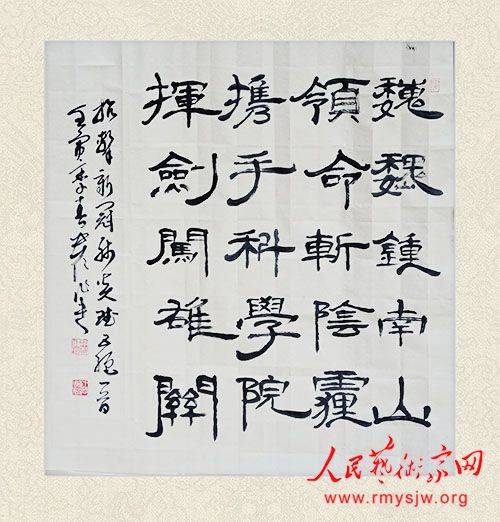 魏魏鍾南山
領命斬陰霾
携手科學院
揮劍闖雄關
抗擊新冠肺炎 五絕一首
壬寅季春
人民藝術家网
www.rmysjw.org